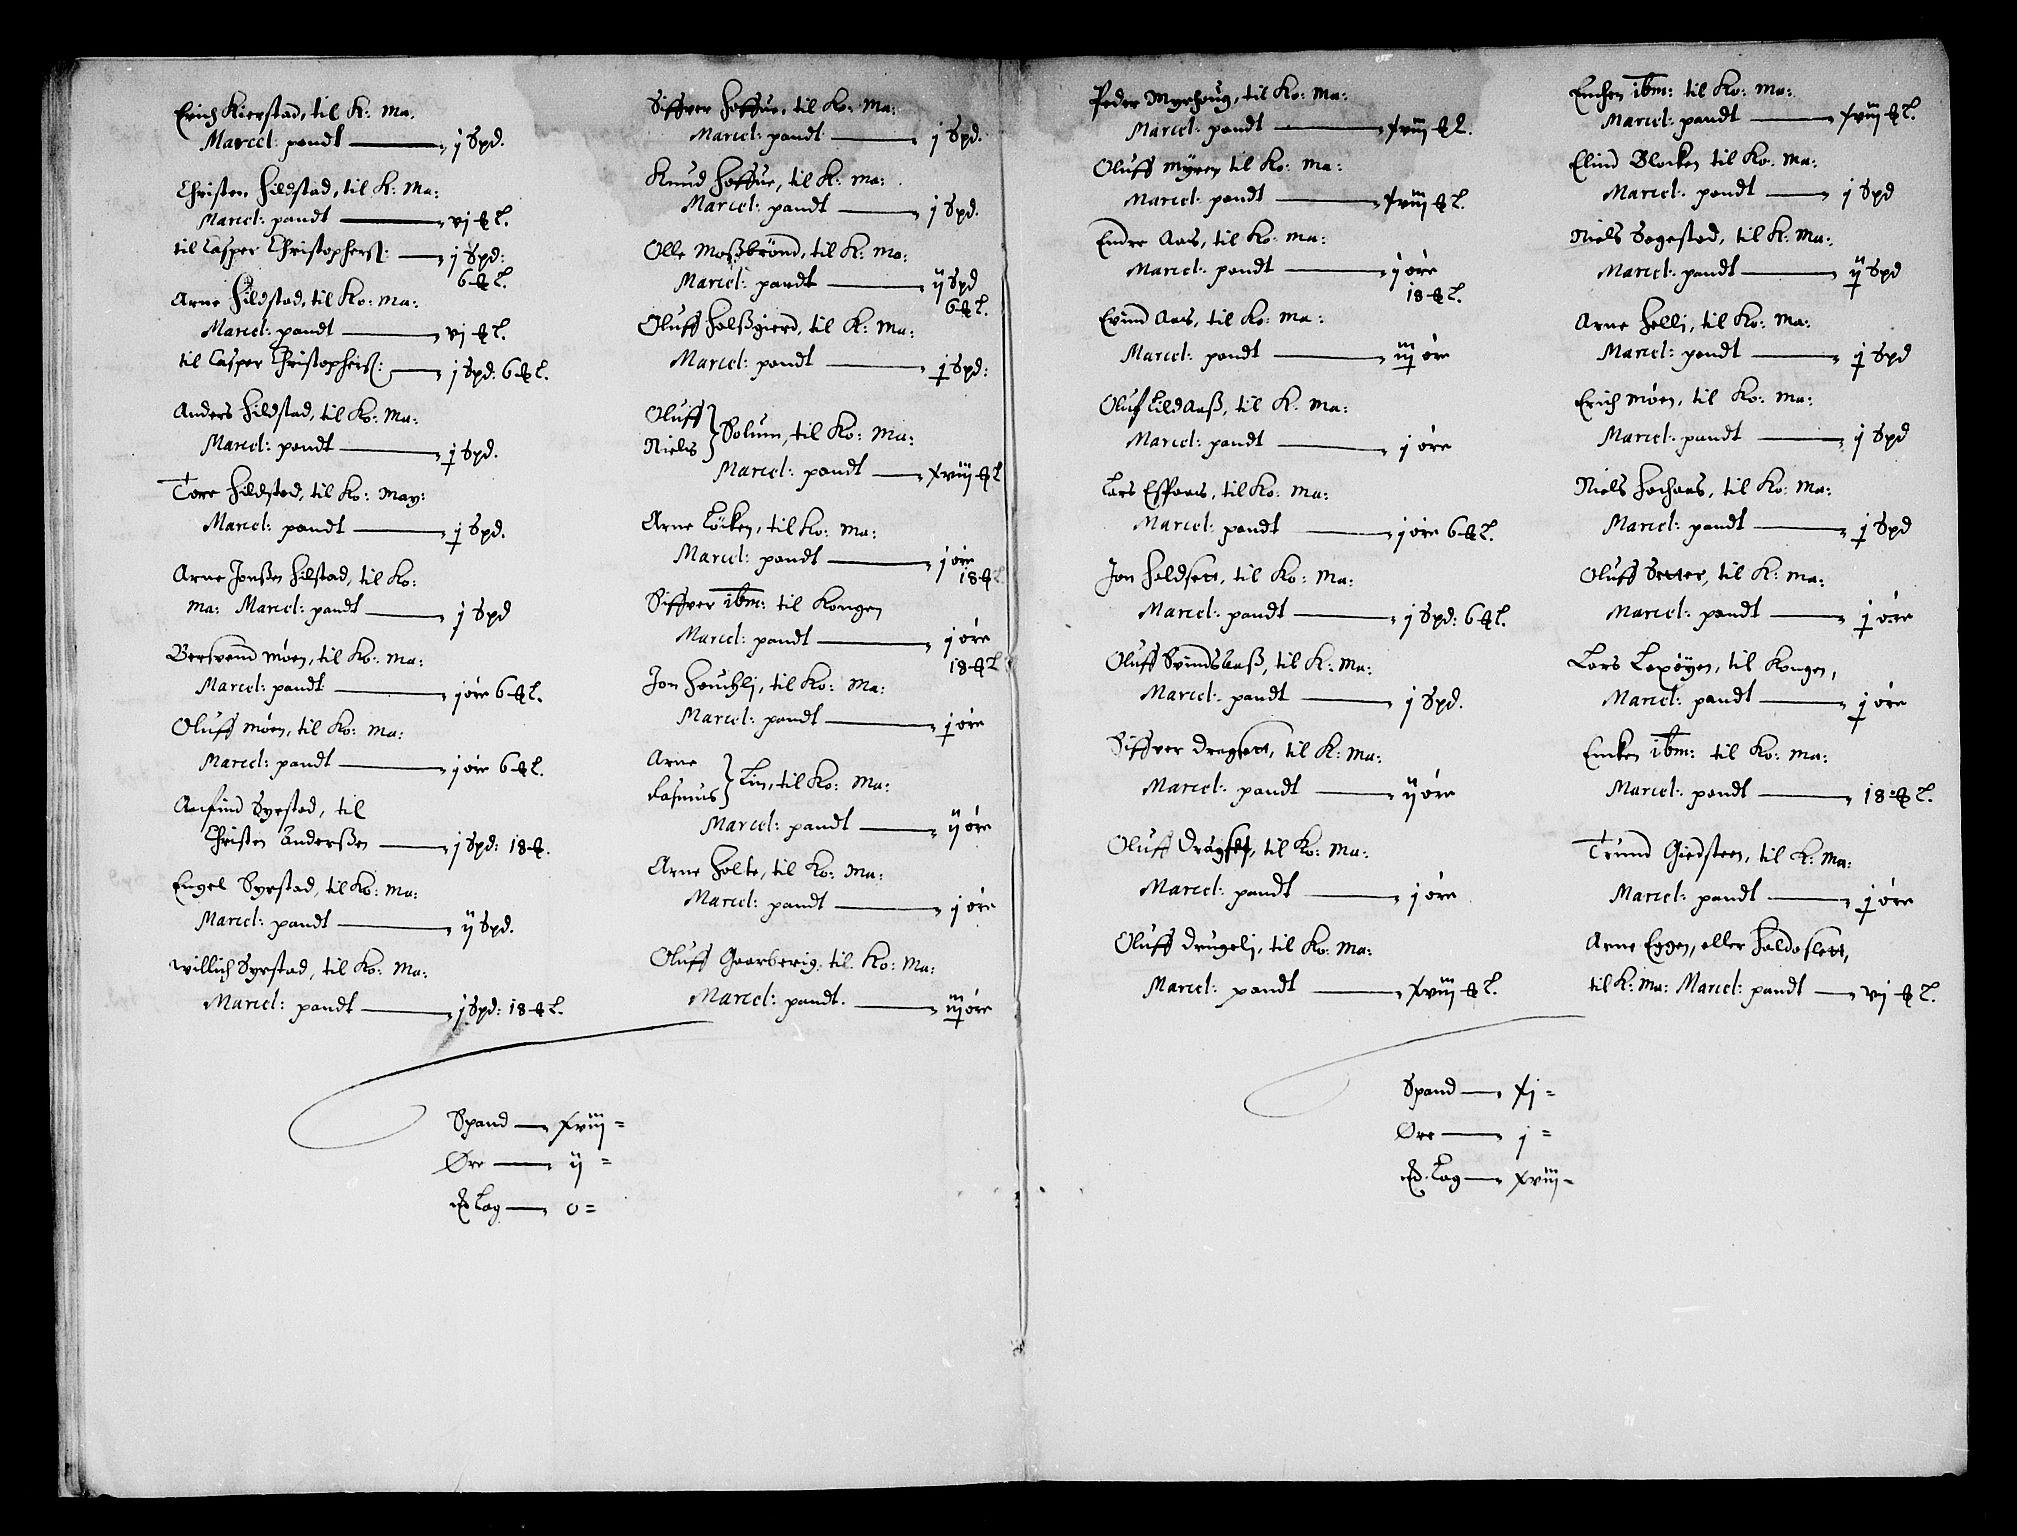 Erich Kierstad, til K: Ma:
Marcel: pandt — j Spd.
Christen Hildstad, til K: Ma:
Marcel: pandt — vj ₰ L.
til Casper Christophers: — j Spd:
6 ₰ L.
Arne Hildstad, til Ko: Ma:
Marcel: pandt — vj ₰ L.
til Casper Christophers: — j Spd: 6 ₰ L.
Anders Hildstad, til Ko: Ma:
Marcel: pandt — j Spd.
Tore Hildstad, til Ko: May:
Marcel: pandt — j Spd.
Arne Jonßen Hilstad, til Ko:
Ma: Marcel: pandt — j Spd
Bersvend Möen, til Ko: Ma:
Marcel: pandt — j öre 6 ₰ L.
Oluff Möen, til Ko: Ma:
Marcel: pandt — j öre 6 ₰ L.
Arnfind Syrstad, til
Christen Anderßen — j Spd: 18 ₰.
Engel Syrstad, til Ko: Ma:
Marcel: pandt — ij Spd.
Willich Syrstad, til Ko: Ma:
Marcel: pandt — j Spd: 18 ₰ L.
Siffver Hoffue, til Ko: Ma:
Marcel: pandt — j Spd.
Knud Hoffue, til K: Ma:
Marcel: pandt — j Spd.
Olle Moßbrönd, til K: Ma:
Marcel: pandt — ij Spd
6 ₰ L.
Oluff Holßgierd, til K: Ma:
Marcel: pandt — j Spd:
Oluff
Niels } Solum, til Ko: Ma:
Marcel: pandt — xviij ₰ L
Arne Löcken, til Ko: Ma:
Marcel: pandt — j öre
18 ₰ L
Siffver ibm: til Kongen
Marcel: pandt — j öre
18 ₰ L
Jon Houchlj, til Ko: Ma:
Marcel: pandt — j öre
Arne
Rasmus } Lin, til Ko: Ma:
Marcel: pandt — ij öre
Arne Holte, til Ko: Ma:
Marcel: pandt — j öre
Oluff Gaarberig, til Ko: Ma:
Marcel: pandt. — iij öre
Spand — xviij =
Öre — ij =
₰ Lag — 0 =
Peder Myrhoug, til Ko: Ma:
Marcel: pandt — xviij ₰ L.
Oluff Myren til Ko: Ma:
Marcel: pandt — xviij ₰ L.
Endre Aas, til Ko: Ma:
Marcel: pandt — j öre
18 ₰ L.
Evind Aas, til Ko: Ma:
Marcel: pandt — iij öre
Oluf Lildaaß, til K: Ma:
Marcel: pandt — j öre
Lars Espaas, til Ko: Ma:
Marcel: pandt — j öre 6 ₰ L.
Jon Holdsett, til Ko: Ma:
Marcel: pandt — j Spd: 6 ₰ L.
Oluff Svindsaaß, til K: Ma:
Marcel: pandt — j Spd.
Siffver Dragsett, til K: Ma:
Marcel: pandt — ij öre
Oluff Dragset, til Ko: Ma:
Marcel: pandt — j öre
Oluff Drugelj, til Ko: Ma:
Marcel: pandt — xviij ₰ L.
Enchen ibm: til Ko: Ma:
Marcel: pandt — xviij ₰ L.
Elind Blocken til Ko: Ma:
Marcel: pandt — j Spd
Niels Sogestad, til K: Ma:
Marcel: pandt — ij Spd
Arne Hellj, til Ko: Ma:
Marcel: pandt — j Spd
Erich Möen, til Ko: Ma:
Marcel: pandt — j Spd
Niels Hochaas, til Ko: Ma:
Marcel: pandt — j Spd
Oluff Setter, til K: Ma:
Marcel: pandt — j öre
Lars Lexöyen, til Kongen,
Marcel: pandt — j öre
Encken ibm: til Ko: Ma:
Marcel: pandt — 18 ₰ L.
Trund Giedsteen, til K: Ma:
Marcel: pandt — j öre
Arne Eggen, eller Haldoslett,
til K: Ma: Marcel: pandt — vj ₰ L.
Spand — xj =
Öre — j =
₰ Lag — xviij =